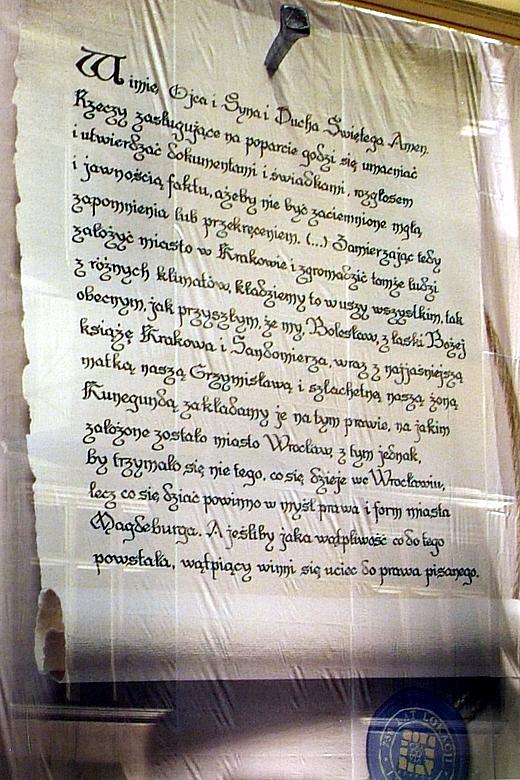 W imię Ojca i Syna i Ducha Świętego Amen.
Rzeczy zasługujące na poparcie godzi się umacniać
i utwierdzać dokumentami i świadkami, rozgłosem
i jawnością faktu, ażeby nie być zaciemnione mgłą
zapomnienia lub przekręceniem. (...) Zamierzając tedy
założyć miasto w Krakowie i zgromadzić tamże ludzi
z różnych klimatów, kładziemy to w uszy wszystkim, tak
obecnym, jak przyszłym, że my, Bolesław, z łaski Bożej
książę Krakowa i Sandomierza, wraz z najjaśniejszą
matką naszą Grzymisławą i szlachetną naszą żoną
Kunegundą zakładamy je na tym prawie, na jakim
założone zostało miasto Wrocław, z tym jednak,
by trzymało się nie tego, co się dzieje we Wrocławiu,
lecz co się dziać powinno w myśl prawa i form miasta
Magdeburga. A jeśliby jaka wątpliwość co do tego
powstała, wątpiący winni się uciec do prawa pisanego.
750 LAT LOKACJI